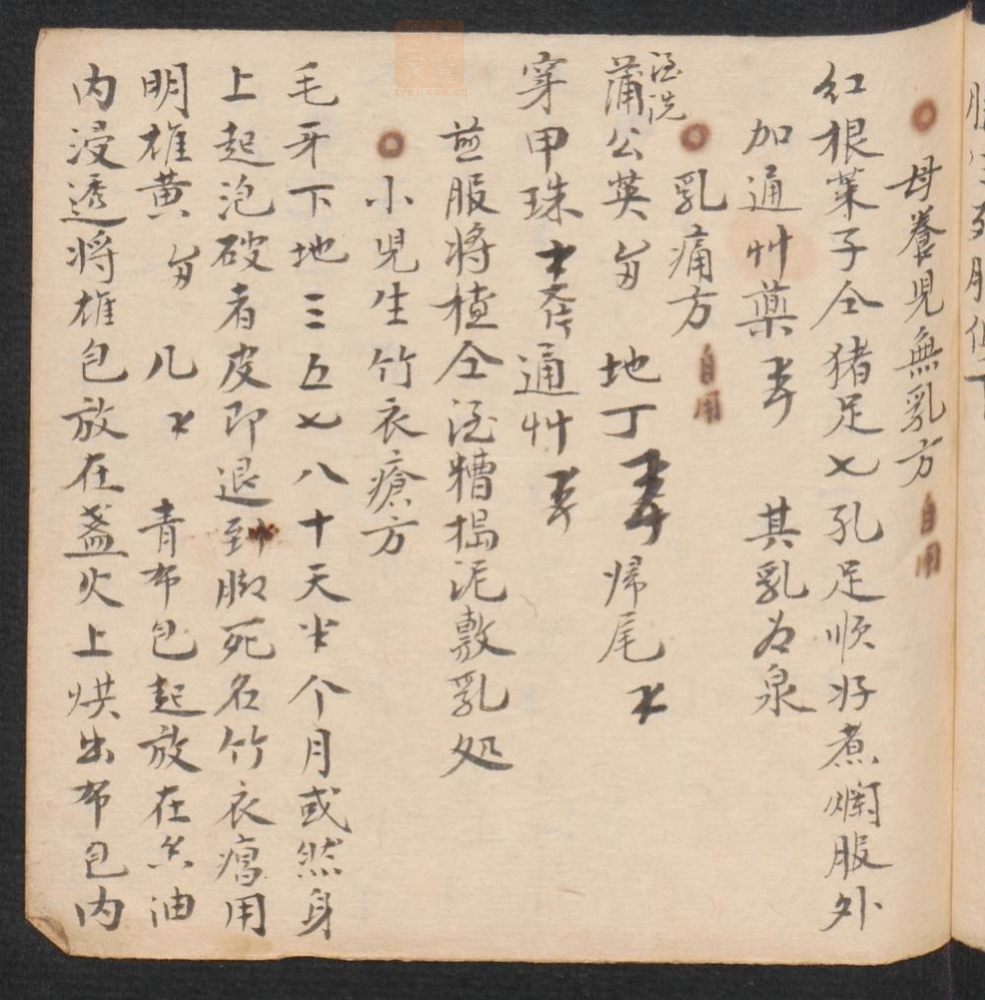 母養児無乳方 自用
红根菜子仝猪足七孔足順好煮爛服外
加通艸藥 其乳為泉
乳痛方 自用
酒洗
蒲公英 地丁 归尾
穿甲珠 通艸
煎服将楂仝酒糟搗泥敷乳处
小児生竹衣瘡方
毛牙下地三五七八十天半个月或然身
上起泡破者皮即退到脚死名竹衣瘍用
明雄黄 几 青布包起放在油
内浸透将雄包放在盏火上烘出布包内